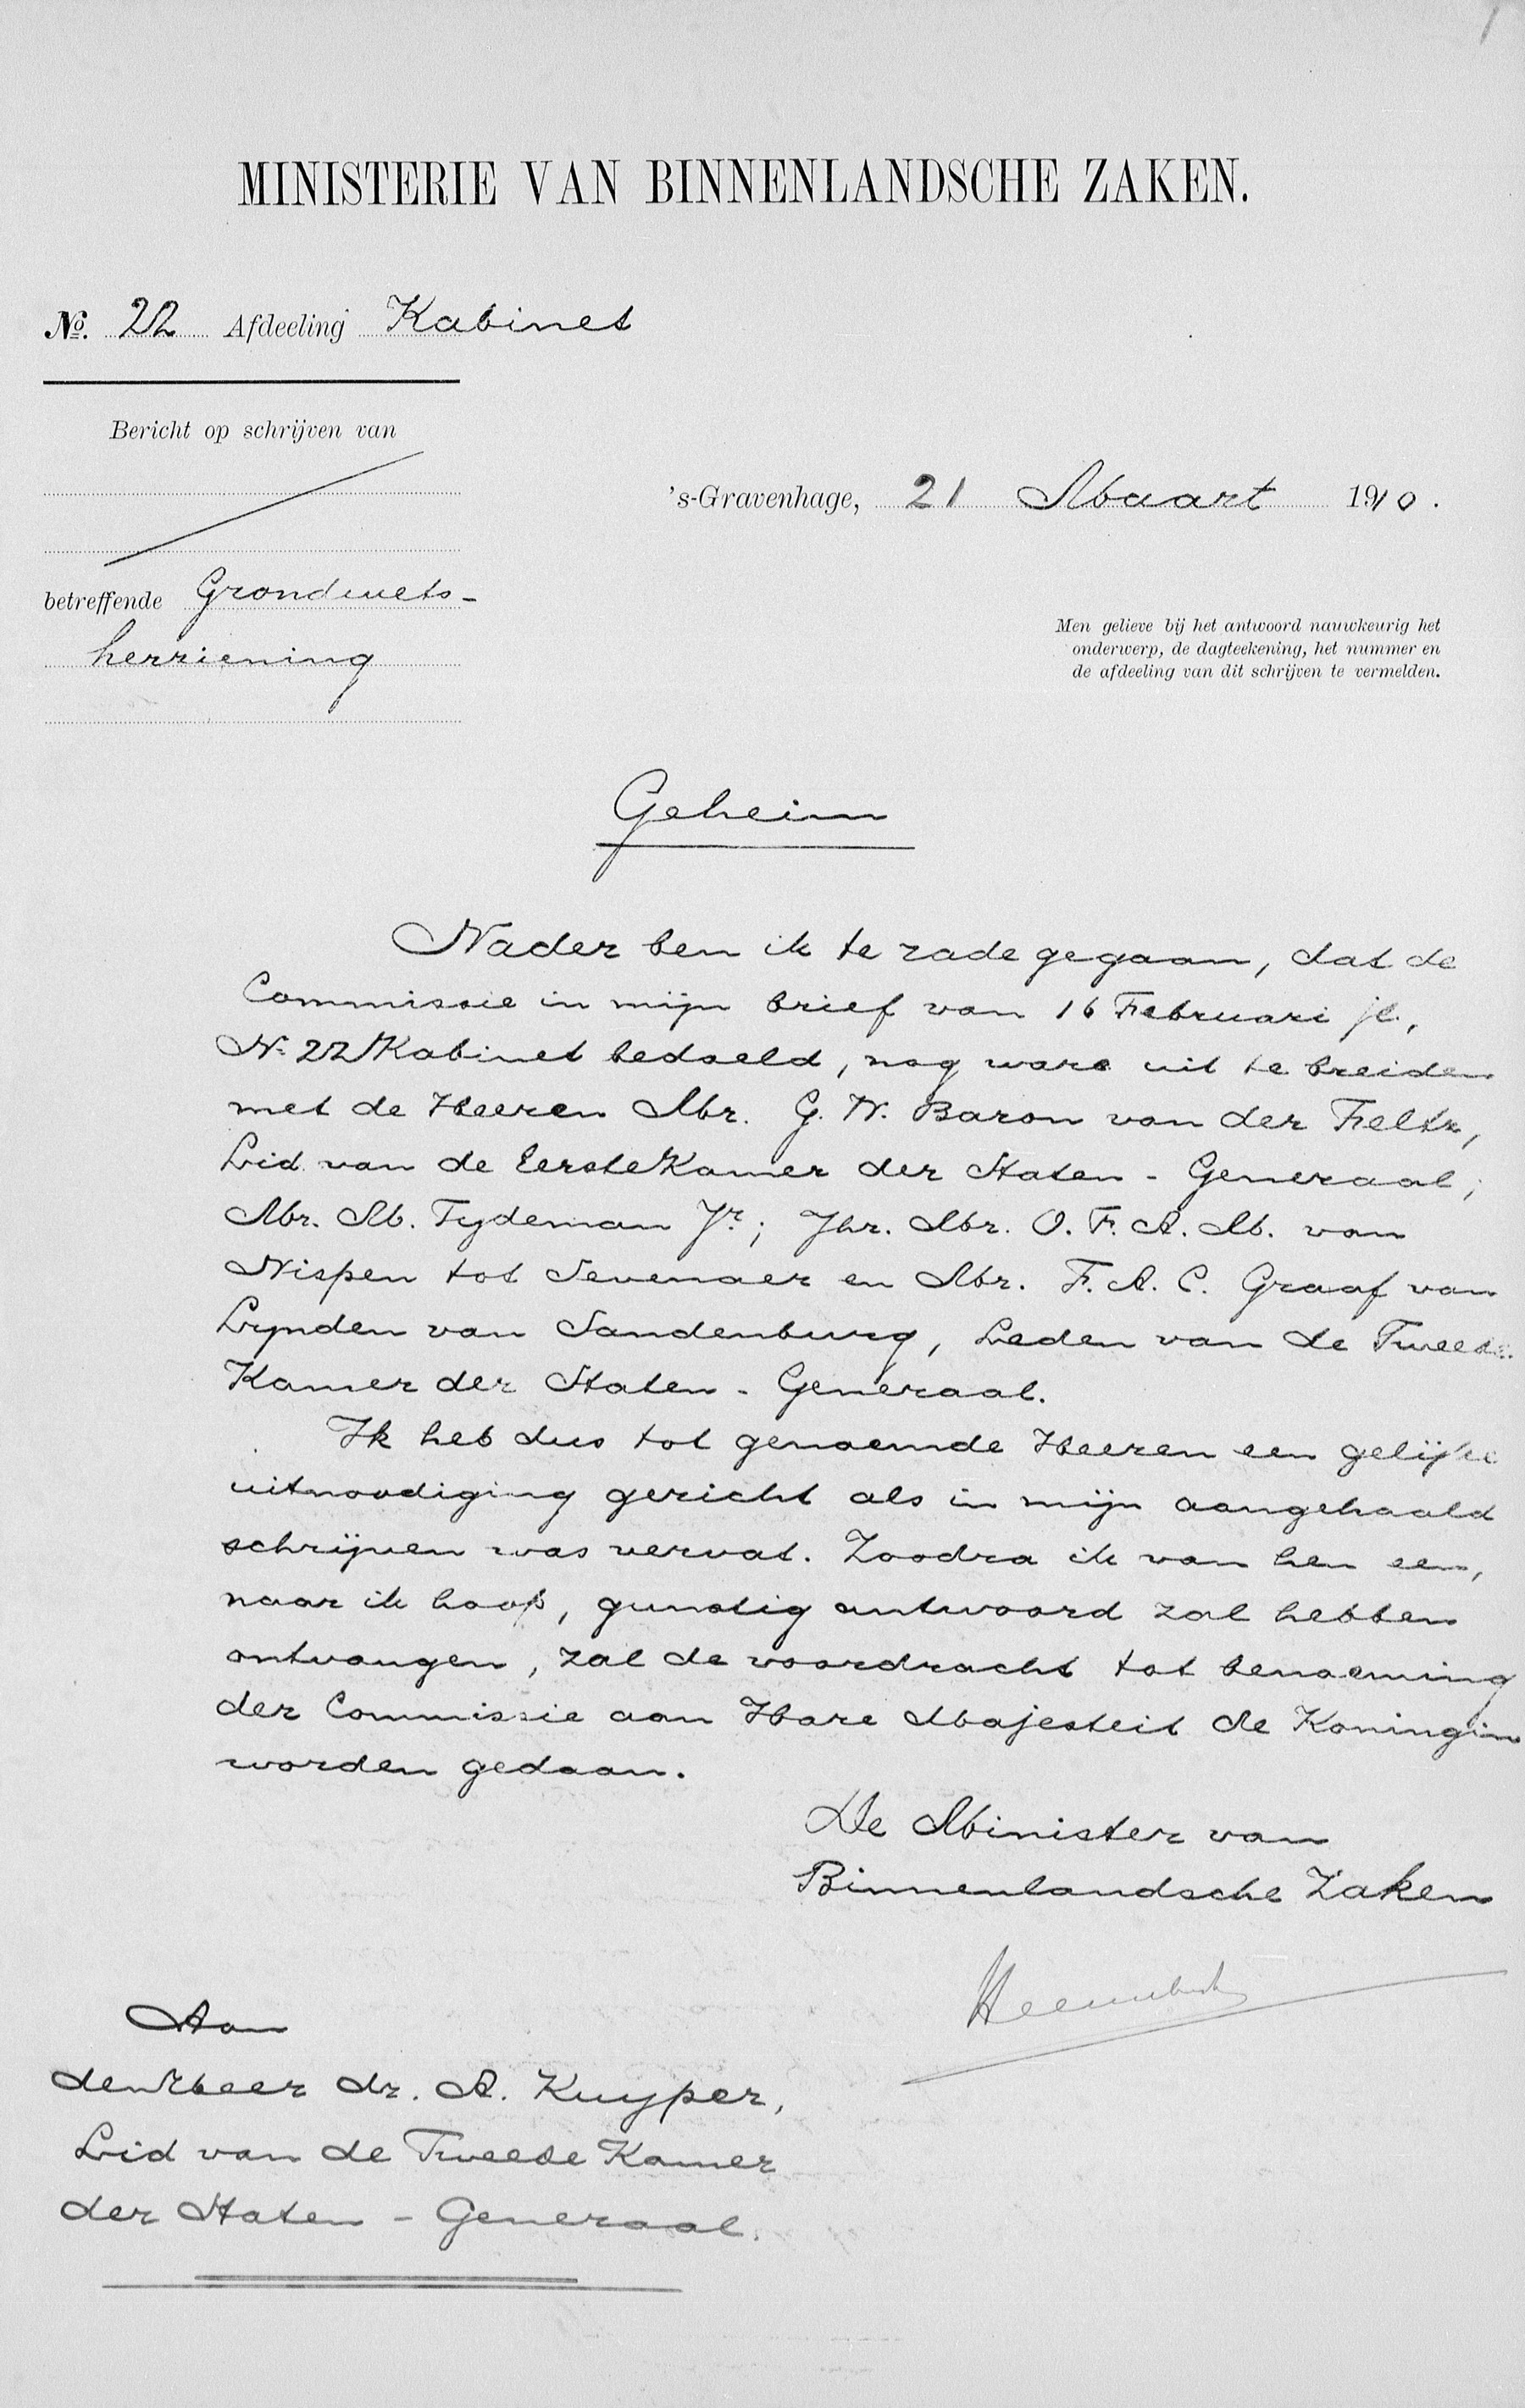 MINISTERIE VAN BINNENLANDSCHE ZAKEN.
No. 22 Afdeeling Kabinet
Bericht op schrijven van
's-Gravenhage, 21 Maart 1910.
betreffende Grondwets-
herziening
Men gelieve bij het antwoord nauwkeurig het
onderwerp, de dagteekening, het nummer en
de afdeeling van dit schrijven te vermelden.
Geheim
Nader ben ik te rade gegaan, dat de
Commissie in mijn brief van 16 Februari jl.,
No. 22 Kabinet bedoeld, nog ware uit te breiden
met de Heeren Mr. G. W. Baron van der Feltz,
Lid van de Eerste Kamer der Staten-Generaal;
Mr. M. Tydeman Jr.; Jhr. Mr. O. F. A. M. van
Nispen tot Sevenaer en Mr. F. A. C. Graaf van
Lynden van Sandenburg, Leden van de Tweede
Kamer der Staten-Generaal.
Ik heb dus tot genoemde Heeren een gelijke
uitnoodiging gericht als in mijn aangehaald
schrijven was vervat. Zoodra ik van hen een,
naar ik hoop, gunstig antwoord zal hebben
ontvangen, zal de voordracht tot benoeming
der Commissie aan Hare Majesteit de Koningin
worden gedaan.
De Minister van
Binnenlandsche Zaken
Heemskerk
Aan
den Heer dr. A. Kuyper,
Lid van de Tweede Kamer
der Staten-Generaal.